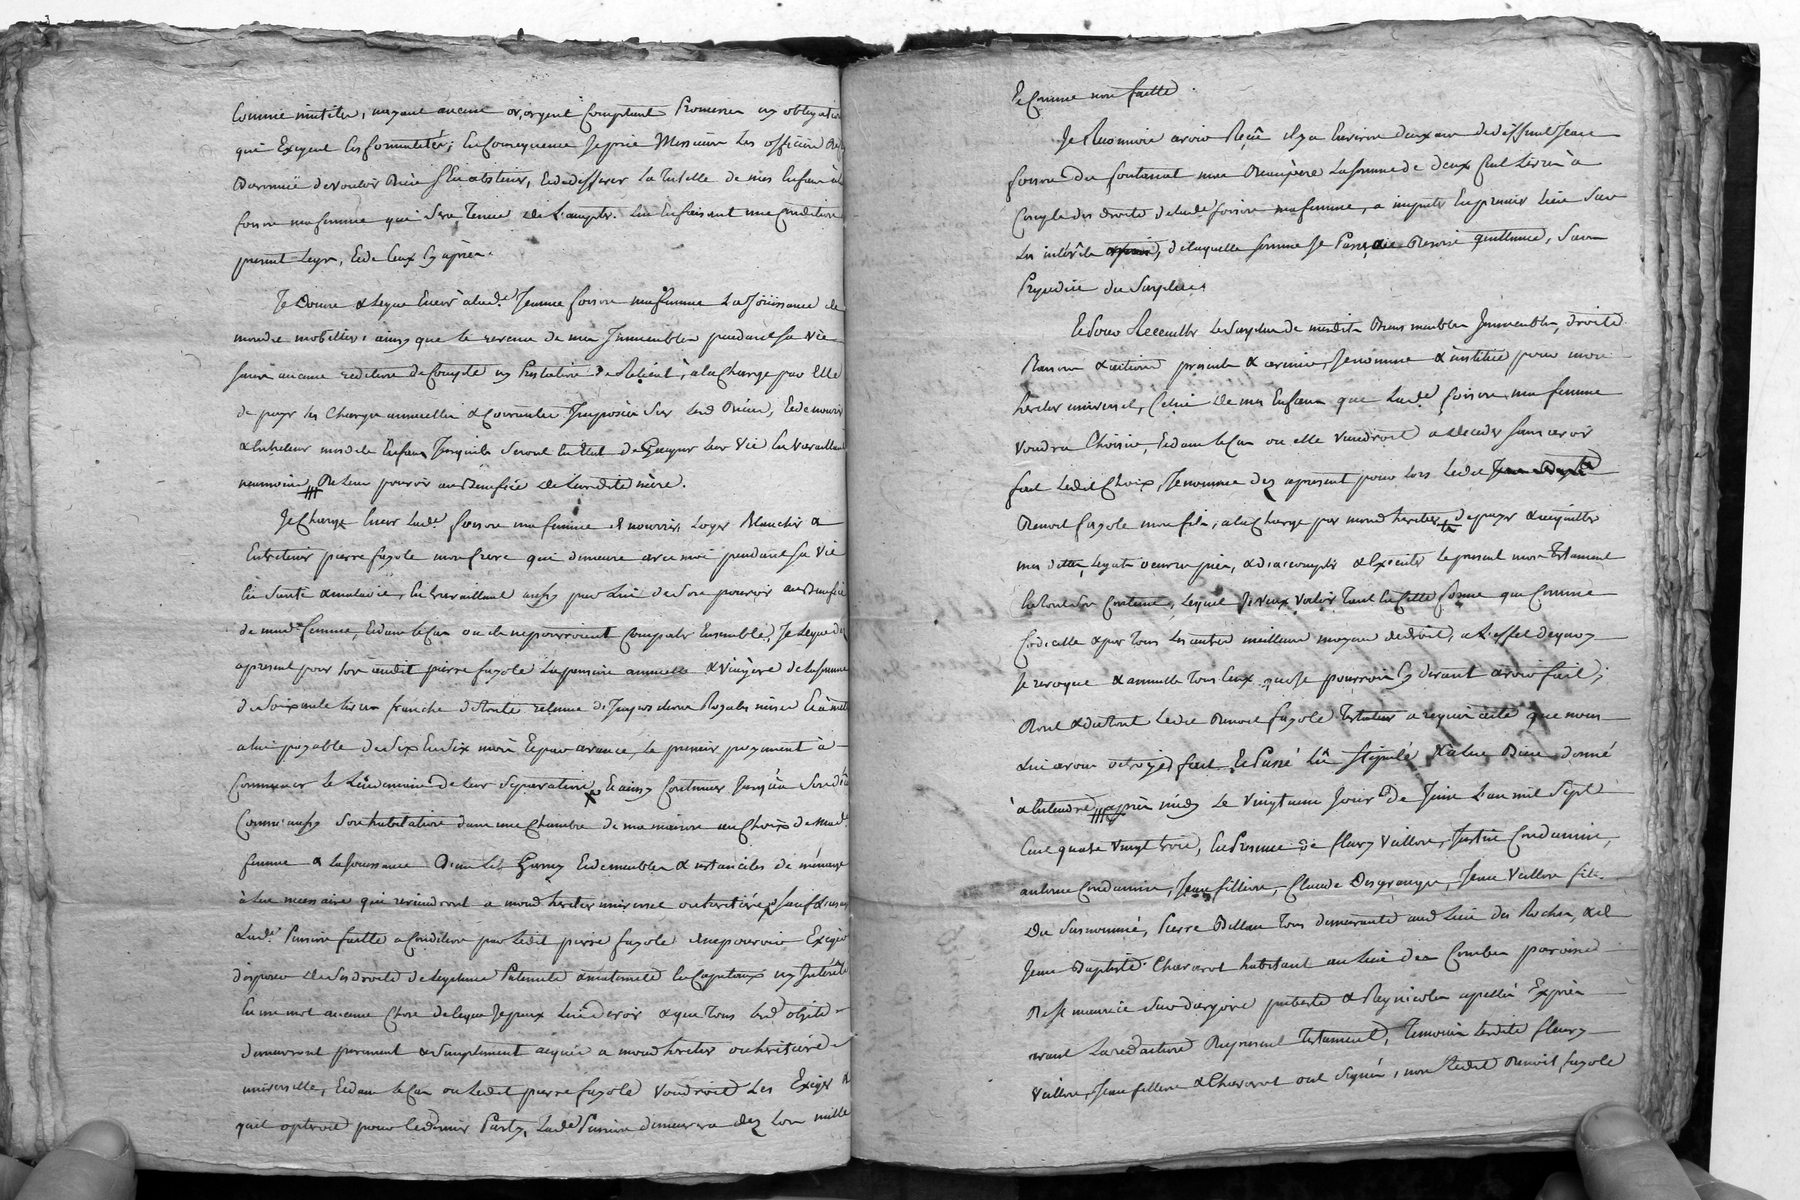 Comme inutile, nayant aucun or, argent Comptant Promesses ny obligations
qui Exigent les formalités; En Consequence Je prie Messieurs Les officiers de
Baronnie de vouloir Bien s'En abstenir, Et de defferer La tutelle de mes Enfans à
foison ma femme qui Sera Tenue de L'accepter. Lui En faisant une Condition
present Legs, Et de Ceux Cy après.
Je Donne & Legue Encor à lad.e Jeanne foison ma femme La Joüissance de
mond. mobillier, ainsy que le revenu de mes Immeubles pendant sa Vie
sans aucune reddition de Compte ny Prestation de Reliquat, à la Charge par Elle
de payer les Charges annuelles & Courantes Imposées Sur lesd Biens, Et de nourir
& Entretenir mesdits Enfans Jusqu'ils Seront En Etat de Gagner Leur Vie En travaillant
neanmoins De Leur pouvoir au Benefice de Leurdite mère.
Je Charge Encor Lad.e foison ma femme de nourrir, Loger Blanchir &
Entretenir pierre fayole mon frere qui demeure avec moi pendant Sa Vie
En Santé & maladie, En travaillant aussy par Lui de Son pouvoir au Benefice
de mad.e femme, Et dans le Cas ou ils ne pourroient Compatir Ensemble, Je Legue de
apresent pour lors audit pierre fayole La pension annuelle & Viagère de la somme
de Soixante livres franche de toute retenue d'Impositions Royales mises Et à mettre
a lui payable de Six En Six mois Et par avance, le premier payement à
Commencer le Lendemain de leur Separation Et ainsy Continuer Jusqu'à Son décès
Comme aussy Son habitation dans une Chambre de ma maison au Choix de Mad.e
femme & la Joüissance D'un Lit Garny Et de meubles & ustanciles de ménage
à Lui necessaire qui reviendront a mond heritier universel ou heritière
Lad.e Pension faitte a Condition que Ledit pierre fayole ne pourra Exiger
de ses droits de Legitime Paternels & maternels En Capitaux ny Intérêts
En un mot aucune Chose de Ce que Je peux Lui devoir & que Tous lesd objets
demeureront purement & Simplement acquis a mond heritier ou heritière
universelle, Et dans le Cas ou Ledit pierre fayole Voudroit Les Exiger
qu'il opteroit pour Ce dernier Party, Lad.e Pension demeurera dez Lors nulle
Et Comme non faitte.
Je Reconnois avoir Reçû il y a Environ deux ans de deffunt Jean
foison du fontanat mon Beaupère La somme de deux Cent livres à
Compte des droits de lad.e foison ma femme, a imputer En premier Lieu Sur
Les intérêts, de laquelle somme Je Passe Bonne quittance, Sans
Prejudice du Surplus.
Et Pour Recueillir Le Surplus de mesdits Biens meubles Immeubles, droits
Raisons & actions presents & avenir, Je nomme & institue pour mon
heritier universel, Celui de mes Enfans que Lad.e foison ma femme
Voudra Choisir, Et dans le Cas ou elle Viendroit a deceder sans avoir
fait Ledit Choix, Je nomme dez apresent pour lors Ledit
Benoit fayole mon fils, a la Charge par mond heritier de payer & acquitter
mes dettes, Legats oeuvres pies, & d'accomplir & Executer Le present mon Testament
En tout Son Contenu, Lequel Je Veux Valoir Tant En Cette forme que Comme
Codicille & par Tous Les autres meilleurs moyens de droit, a L'effet de quoy
Je revoque & annulle Tous Ceux que Je pourrois Cy devant avoir fait;
Dont & du tout Ledit Benoit fayole Testateur a requis acte que nous
Lui avons octroyé; fait Et Passé Lû Stipulé & a Lui Bien donné
à Entendre après midy Le Vingt un Jour De Juin L'an mil Sept
Cent quatre Vingt trois, En Presence de fleury Vallon, Justin Condamin,
antoine Condamin, Jean fillion, Claude Desgranges, Jean Vallon fils
Du Susnommé, Pierre Billan Tous demeurants aud Lieu des Roches, & de
Jean Baptiste Chavanot habitant au Lieu des Combes paroisse
De St maurice Sur dargoire puberts & Regnicoles apellés Exprès
avant La redaction Du present Testament, Temoins lesdits fleury
Vallon, Jean fillion & Chavanot ont Signés, non Ledit Benoit fayole